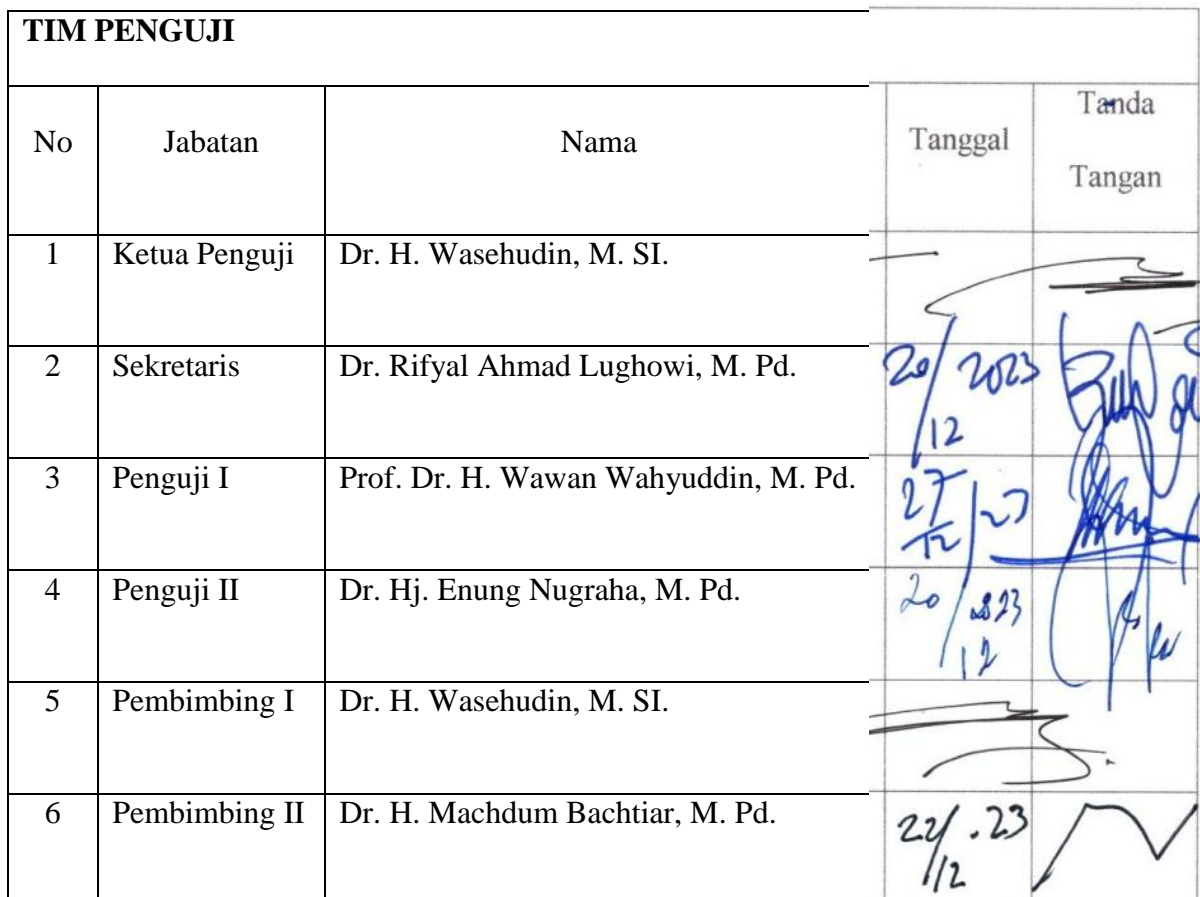 TIM PENGUJI
No Jabatan Nama Tanggal Tanda Tangan
1 Ketua Penguji Dr. H. Wasehudin, M. SI.
2 Sekretaris Dr. Rifyal Ahmad Lughowi, M. Pd. 20/12 2023
3 Penguji I Prof. Dr. H. Wawan Wahyuddin, M. Pd. 27/12/23
4 Penguji II Dr. Hj. Enung Nugraha, M. Pd. 20/12 2023
5 Pembimbing I Dr. H. Wasehudin, M. SI.
6 Pembimbing II Dr. H. Machdum Bachtiar, M. Pd. 22/12.23